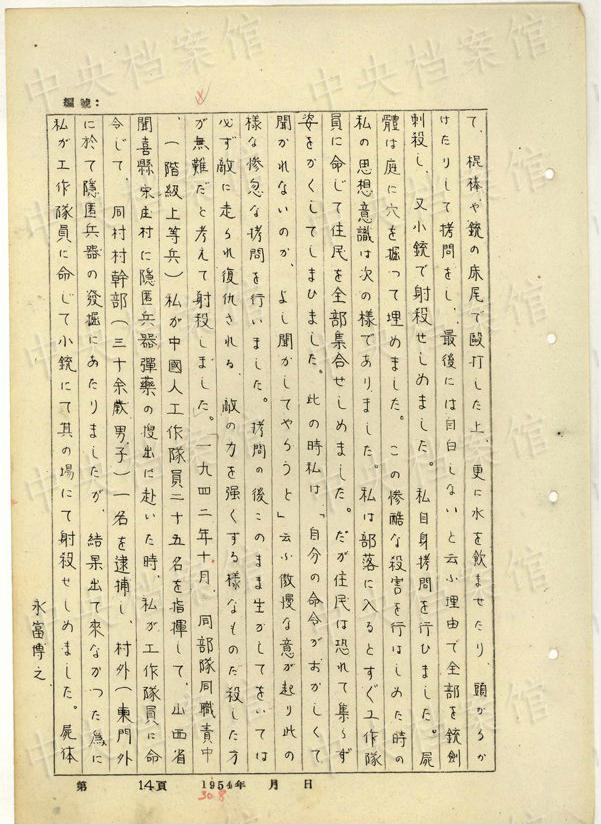 編號：
て、棍棒や銃の床尾で毆打した上、更に水を飲ませたり、頭からか
けたりして拷問をし、最後には自白しないと云ふ理由で全部を銃劍
刺殺し、又小銃で射殺せしめました。私自身拷問を行ひました。屍
體は庭に穴を掘つて埋めました。この惨酷な殺害を行はしめた時の
私の思想意識は次の様でありました。私は部落に入るとすぐ工作隊
員に命じて住民を全部集合せしめました。だが住民は恐れて集らず
姿をかくしてしまひました。此の時私は「自分の命令がおかしくて
聞かれないのか、よし聞かしてやらうと」云ふ傲慢な意が起り此の
様な惨忽な拷問を行いました。拷問の後このまま生かしてをいては
必ず敵に走られ復仇される、敵の力を強くする様なものだ殺した方
が無難だと考えて射殺しました。「一九四二年十月、同部隊同職責中
、一階級上等兵）私が中國人工作隊員二十五名を指揮して、山西省
聞喜縣宋庄村に隠匿兵器彈藥の搜出に赴いた時、私が工作隊員に命
令じて、同村村幹部（三十余歳男子）一名を逮捕し、村外（東門外
に於て隠匿兵器の發掘にあたりましたが、結果出て來なかつた爲に
私が工作隊員に命じて小銃にて其の場にて射殺せしめました。屍体
永富博之
第 14頁 1954年 月 日
30 8
中央档案馆